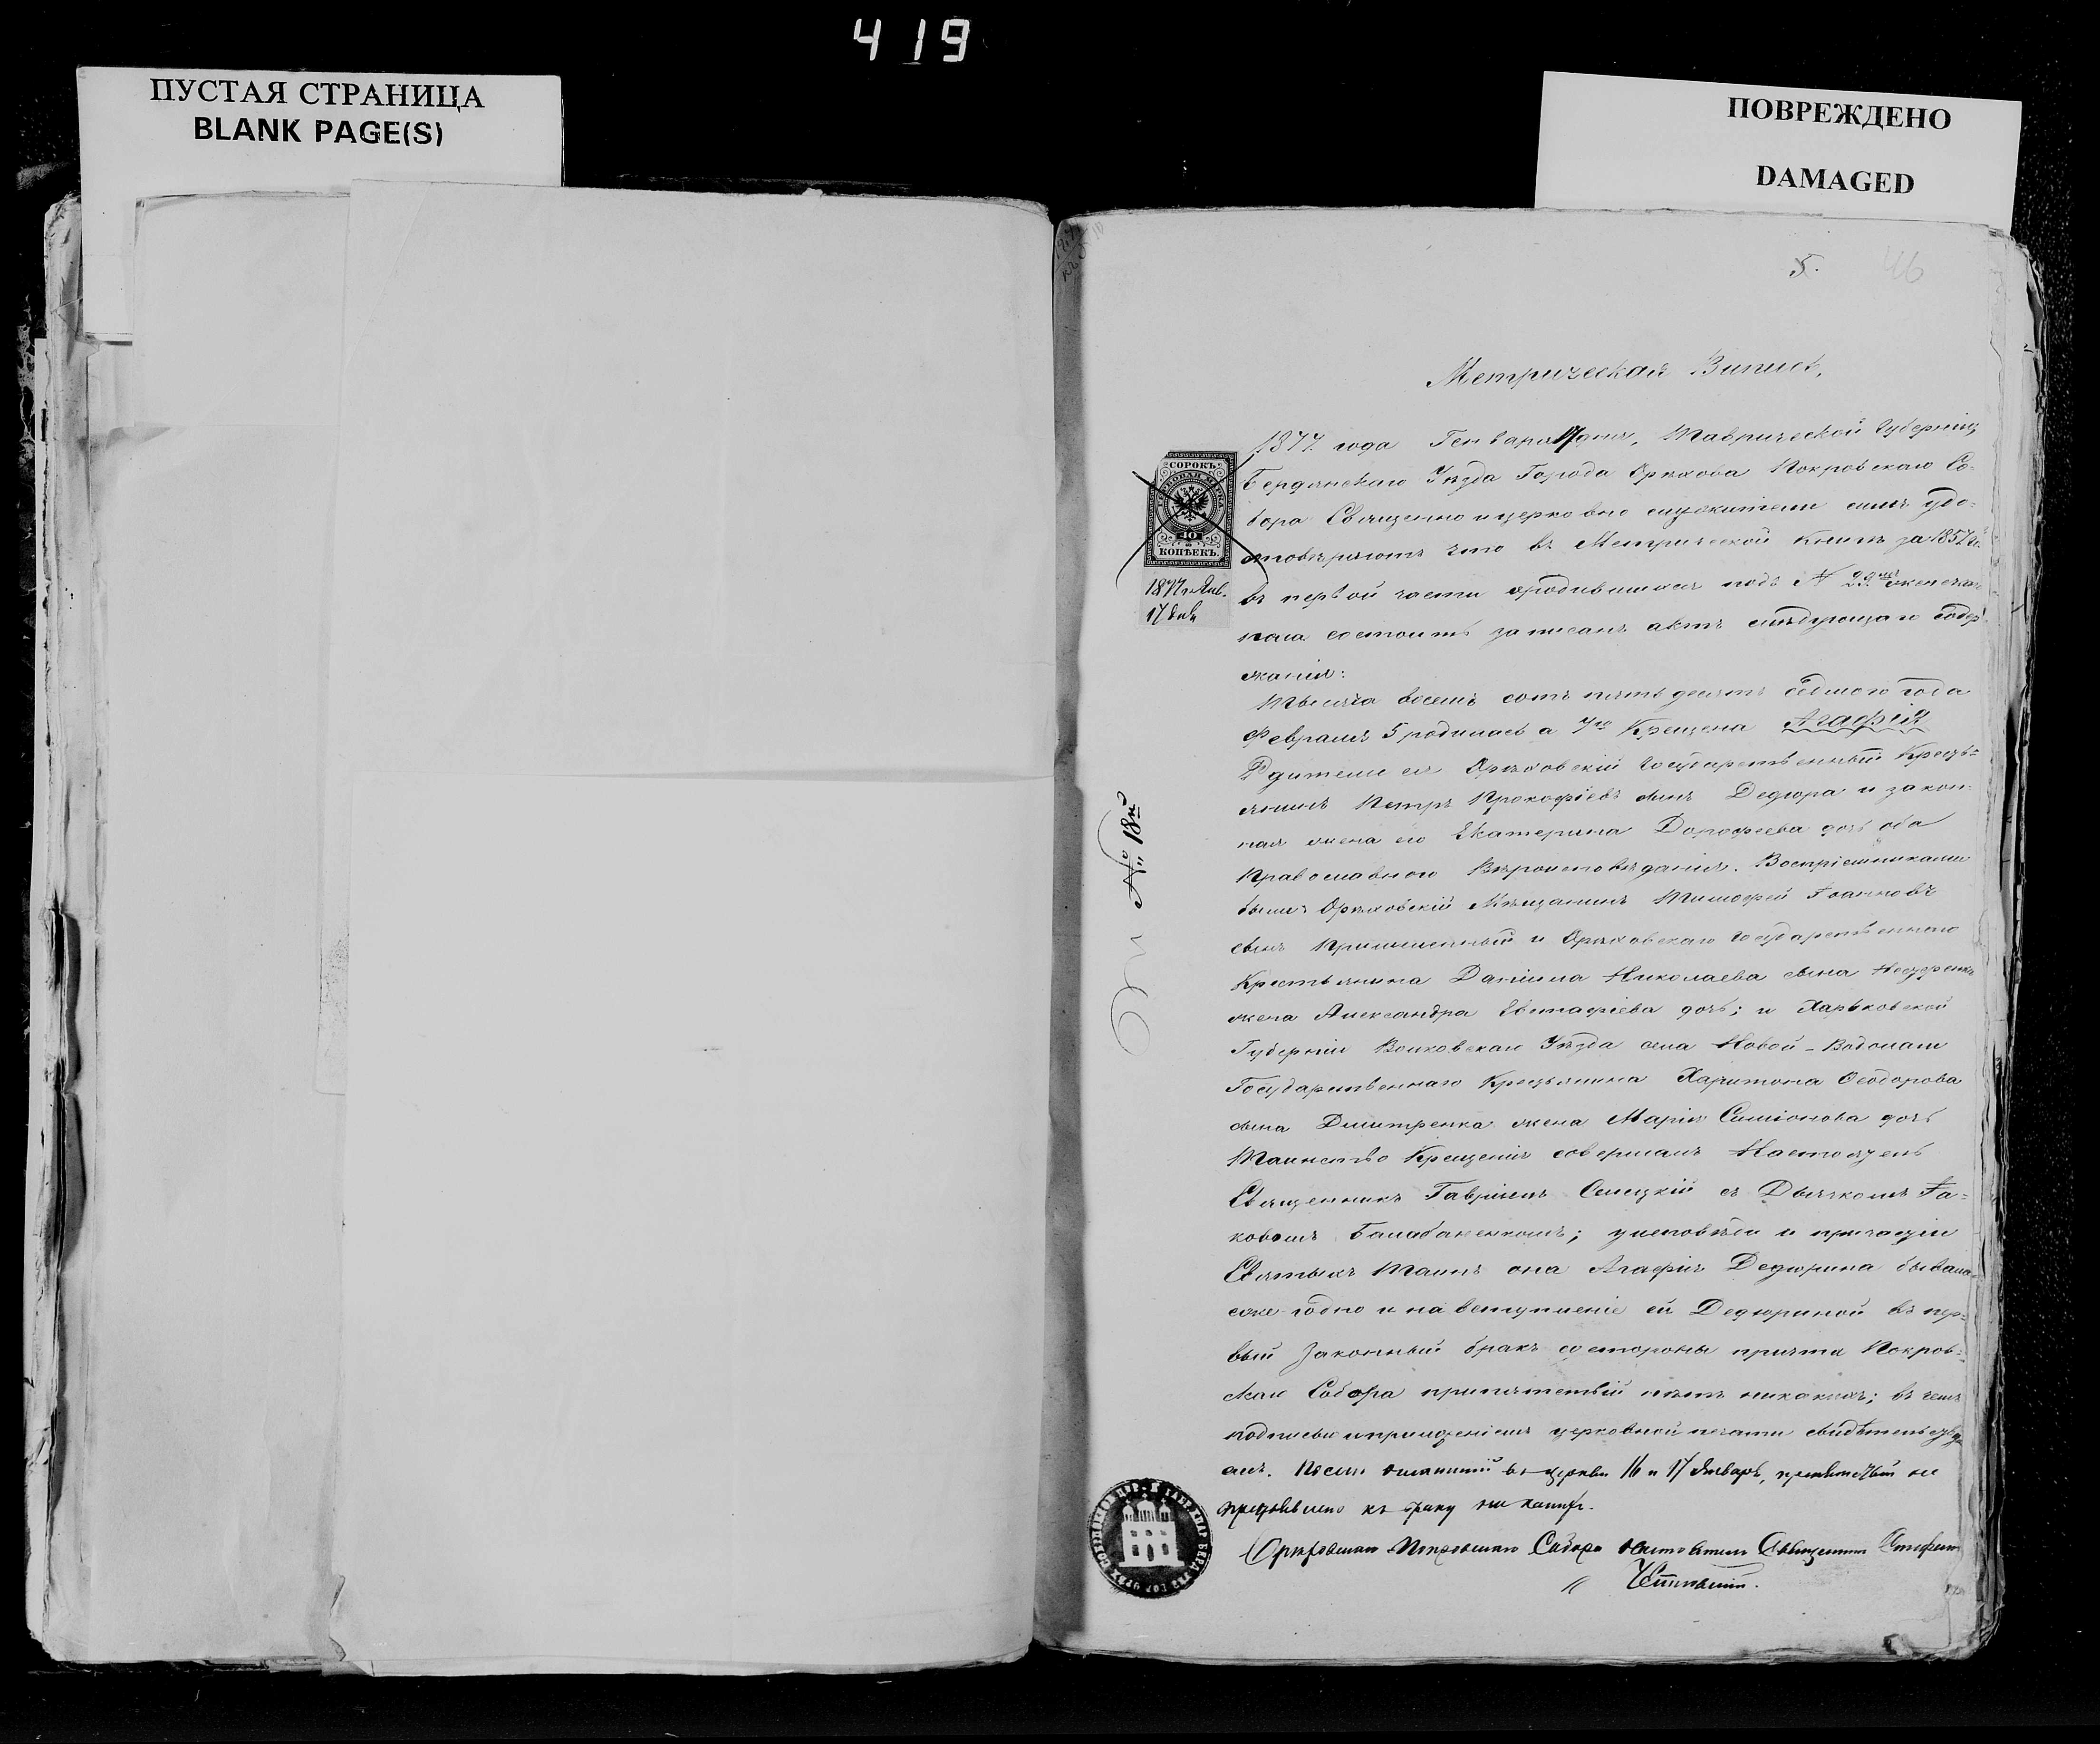 419
ПУСТАЯ СТРАНИЦА
BLANK PAGE(S)
ПОВРЕЖДЕНО
DAMAGED
5.
46
Метрическая Выпись.
1877 года Генваря 17 дня, Таврической Губерніи
Бердянскаго Уѣзда Города Орѣхова Покровскаго Со-
бора Священно и церковно служители симъ удо-
стовѣряютъ что въ Метрической книгѣ за 1857 й
въ первой части о родившихся подъ № 29 мъ женскаго
пола состоитъ записанъ актъ слѣдующаго содер-
жанія:
Тысяча восемь сотъ пятьдесятъ седмого года
Февраля 5 родилась а 7го Крещена Агафія
Родители ея Орѣховскій Государственный Кресть-
янинъ Петръ Прокофіевъ сынъ Дедюра и закон-
ная жена его Екатерина Дорофеева дочь оба
Православного Вѣроисповѣданія. Воспріемниками
были: Орѣховскій Мѣщанинъ Тимофей Іоанновъ
сынъ и Орѣховскаго Государственнаго
Крестьянина Даніила Николаева сына
жена Александра Евстафіева дочь; и Харьковской
Губерніи Волковскаго Уѣзда села Новой-Водолаги
Государственнаго Крестьянина Харитона Ѳеодорова
сына Дмитренка жена Марія Симіонова дочь
Таинство Крещенія совершалъ Настоятель
Священникъ Гавріилъ с Дьячкомъ Іа-
ковомъ Балабаненкомъ; у исповѣди и причастіи
Святыхъ Таинъ она Агафія Дедюрина бывала
еже-годно и на вступленіе ей Дедюриной въ пер-
вый Законный бракъ со стороны причта Покров-
скаго Собора припятствій нѣтъ никакихъ; въ чемъ
подписью и приложеніемъ церковной печати свидѣтельству-
емъ. въ церкви 16 и 17 Января, препятствій не
къ браку
Орѣховскаго Покровскаго Собора Настоятель Священникъ
СОРОКЪ
40
КОПѢЕКЪ.
1877 г. Янв.
17 дня
№ 18й